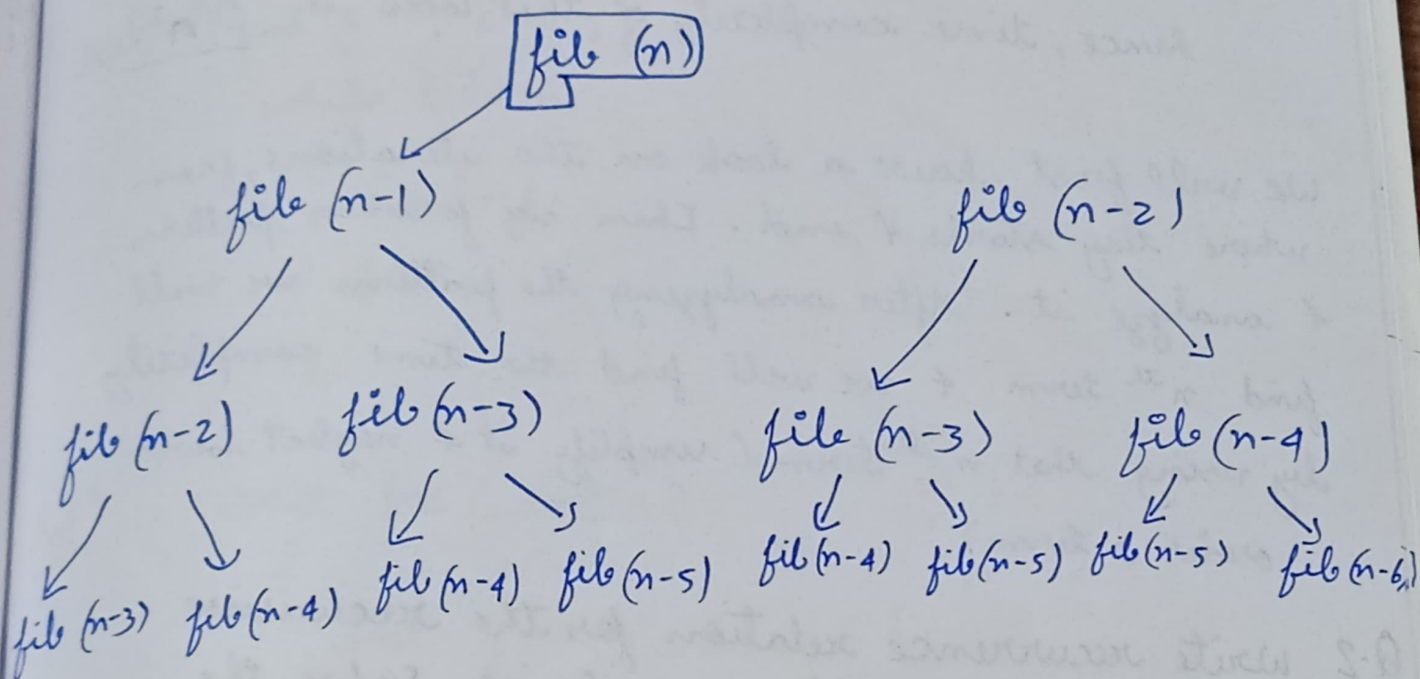 fib (n)
fib (n-1) fib (n-2)
fib (n-2) fib (n-3) fib (n-3) fib (n-4)
fib (n-3) fib (n-4) fib (n-4) fib (n-5) fib (n-4) fib (n-5) fib (n-5) fib (n-6)